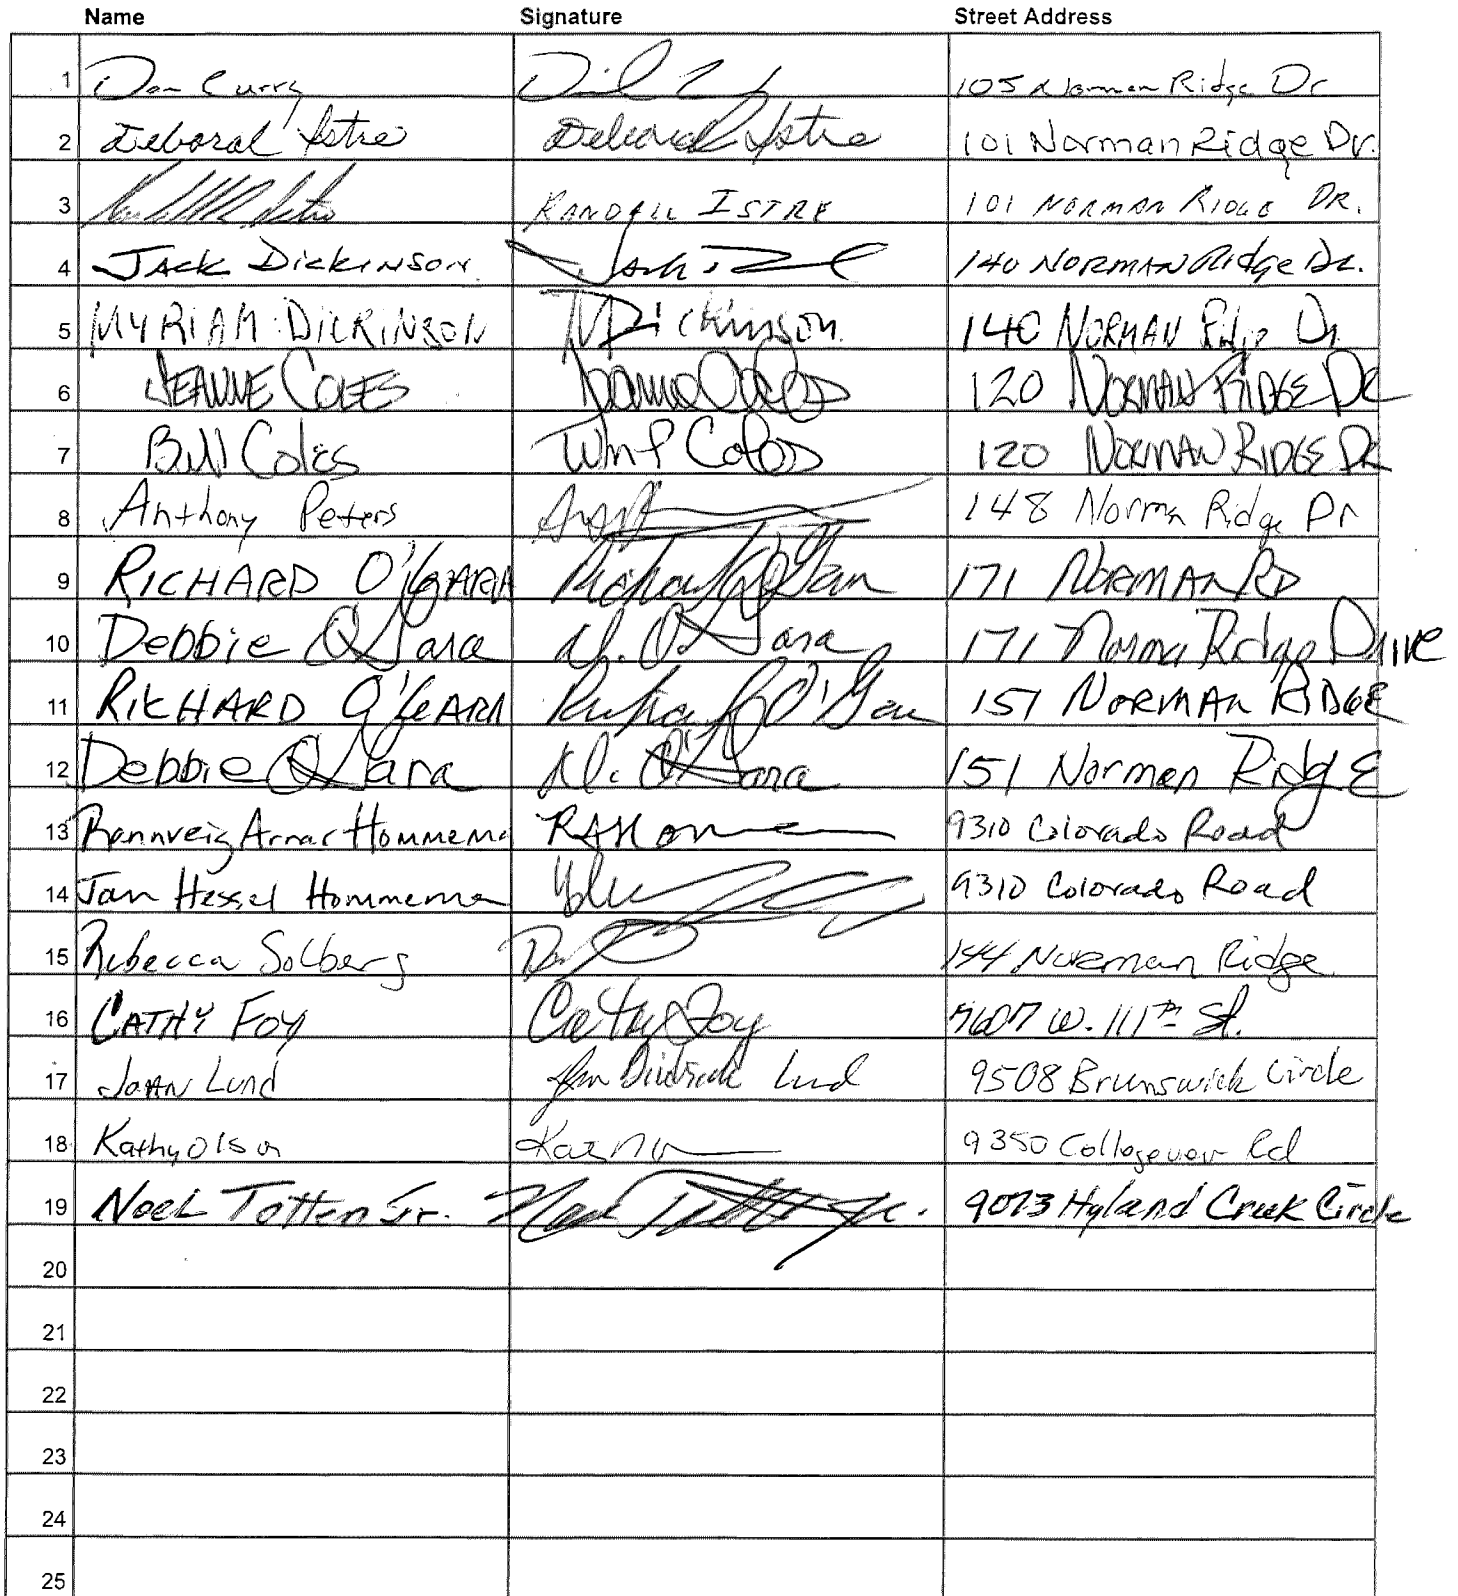 Name Signature Street Address
1 Dan Curry 105 Norman Ridge Dr
2 Deborah Istre Deborah Istre 101 Norman Ridge Dr.
3 RANDALL ISTRE 101 NORMAN RIDGE DR.
4 JACK DICKINSON 140 NORMAN Ridge Dr.
5 MYRIAM DICKINSON MDickinson 140 NORMAN Ridge Dr.
6 JEANNE COLES Jeanne Coles 120 NORMAN RIDGE DR
7 Bill Coles Wm P Coles 120 NORMAN RIDGE DR
8 Anthony Peters 148 Norman Ridge Dr
9 RICHARD O'GARA Richard O'Gara 171 NORMAN RD
10 Debbie O'Gara D. O'Gara 171 Norman Ridge Drive
11 RICHARD O'GEARA Richard O'Gara 151 NORMAN RIDGE
12 Debbie O'Gara D. O'Gara 151 Norman Ridge
13 Rannveig Arnar Hommema 9310 Colorado Road
14 Jan Hessel Hommema 9310 Colorado Road
15 Rebecca Solberg 144 Norman Ridge
16 CATHY FOY Cathy Foy 5607 W. 111th St.
17 JoAnn Lund Lund 9508 Brunswick Circle
18 Kathy Olson 9350 Collegeview Rd
19 Noel Totten Jr. Noel Totten Jr. 9073 Hyland Creek Circle
20
21
22
23
24
25